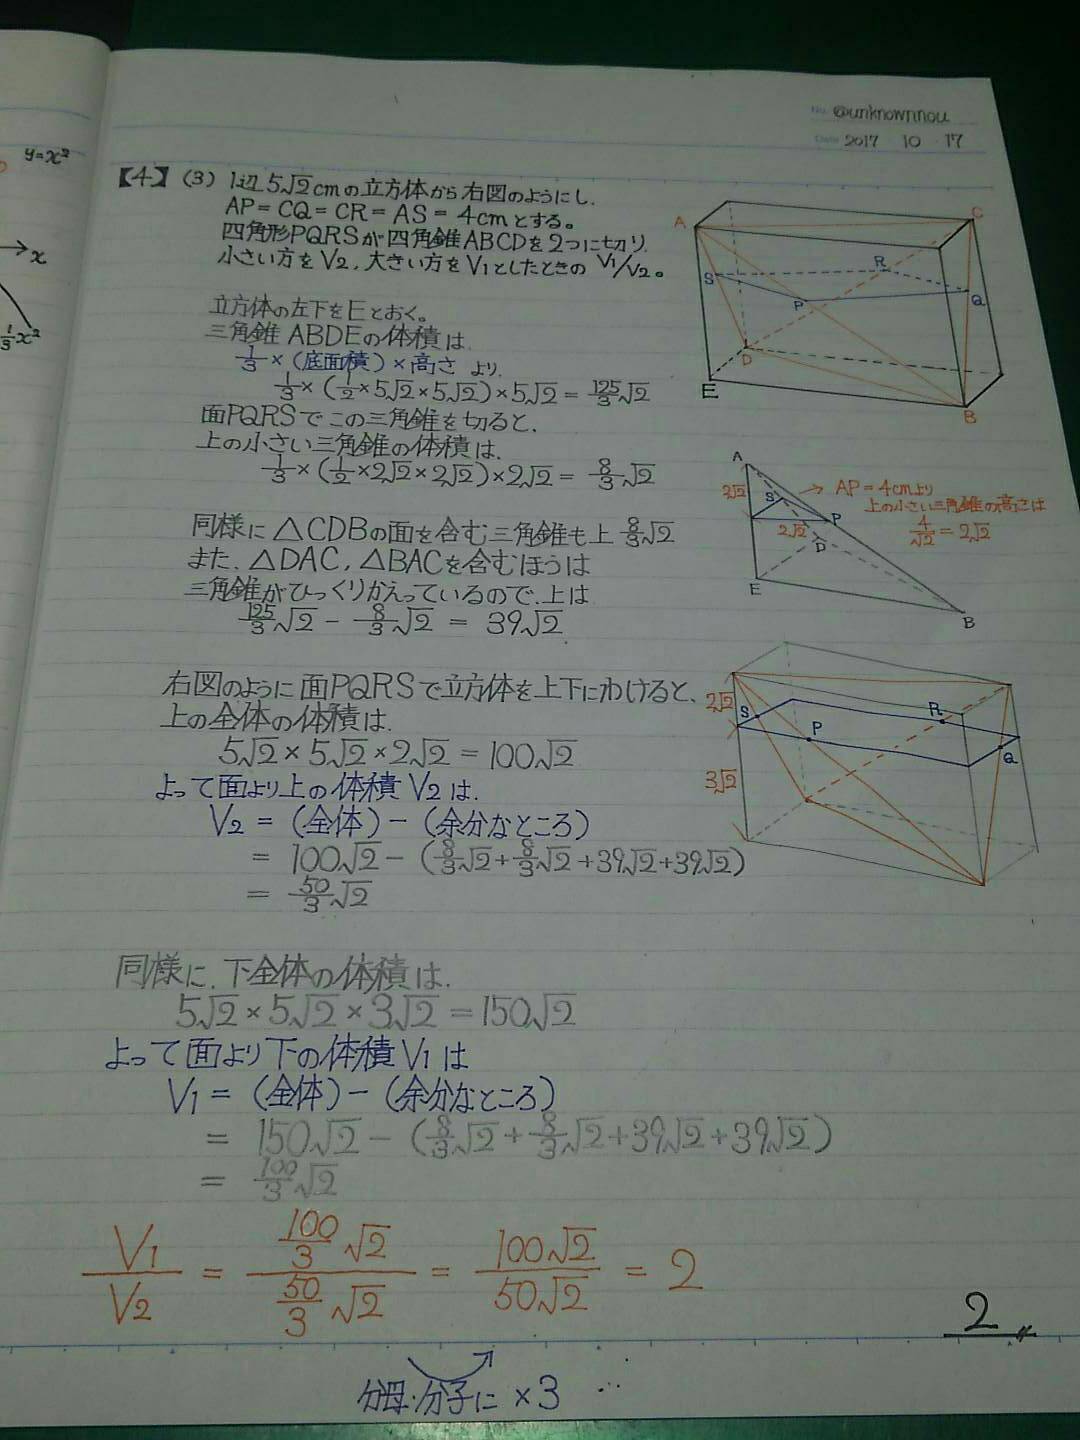 No. @unknownnou
Date 2017 10 17
y=x²
x
1/3x²
【4】(3) 1辺5√2cmの立方体から右図のようにし、
AP=CQ=CR=AS=4cmとする。
四角形PQRSが四角錐ABCDを2つに切り、
小さい方をV2、大きい方をV1としたときの V1/V2。
立方体の左下をEとおく。
三角錐ABDEの体積は、
1/3×(底面積)×高さ より、
1/3×(1/2×5√2×5√2)×5√2=125/3√2
面PQRSでこの三角錐を切ると、
上の小さい三角錐の体積は、
1/3×(1/2×2√2×2√2)×2√2=8/3√2
同様に△CDBの面を含む三角錐も上8/3√2
また、△DAC,△BACを含むほうは
三角錐がひっくりかえっているので、上は
125/3√2-8/3√2=39√2
右図のように面PQRSで立方体を上下にわけると、
上の全体の体積は、
5√2×5√2×2√2=100√2
よって面より上の体積V2は、
V2=(全体)-(余分なところ)
=100√2-(8/3√2+8/3√2+39√2+39√2)
=50/3√2
同様に、下全体の体積は、
5√2×5√2×3√2=150√2
よって面より下の体積V1は
V1=(全体)-(余分なところ)
=150√2-(8/3√2+8/3√2+39√2+39√2)
=100/3√2
V1/V2=(100/3√2)/(50/3√2)=100√2/50√2=2
2
分母・分子に×3
A
C
S
R
P
Q
D
E
B
A
2√2
S
P
2√2
D
E
B
AP=4cmより
上の小さい三角錐の高さは
4/√2=2√2
2√2
S
P
R
Q
3√2